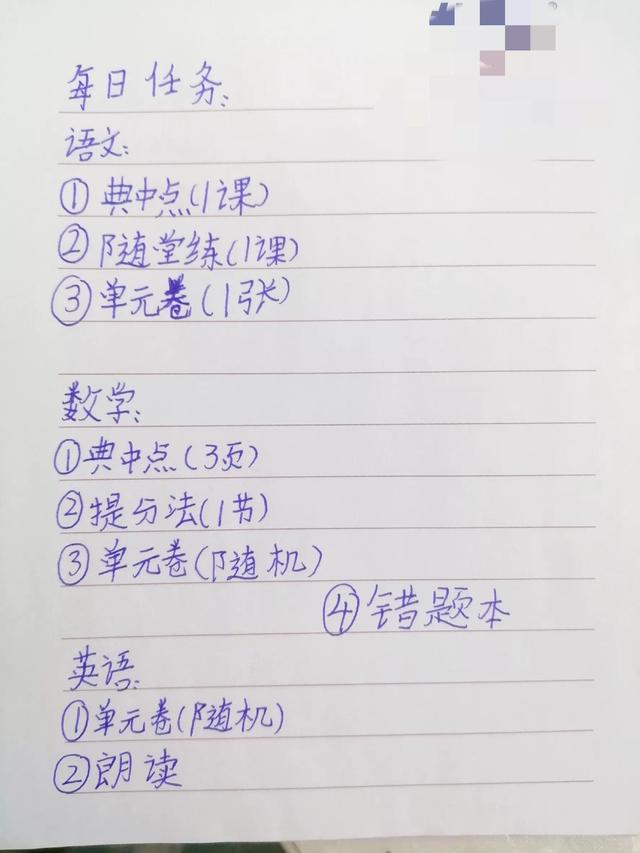 每日任务:
语文:
①典中点(1课)
②随堂练(1课)
③单元卷(1张)
数学:
①典中点(3页)
②提分法(1节)
③单元卷(随机)
④错题本
英语:
①单元卷(随机)
②朗读